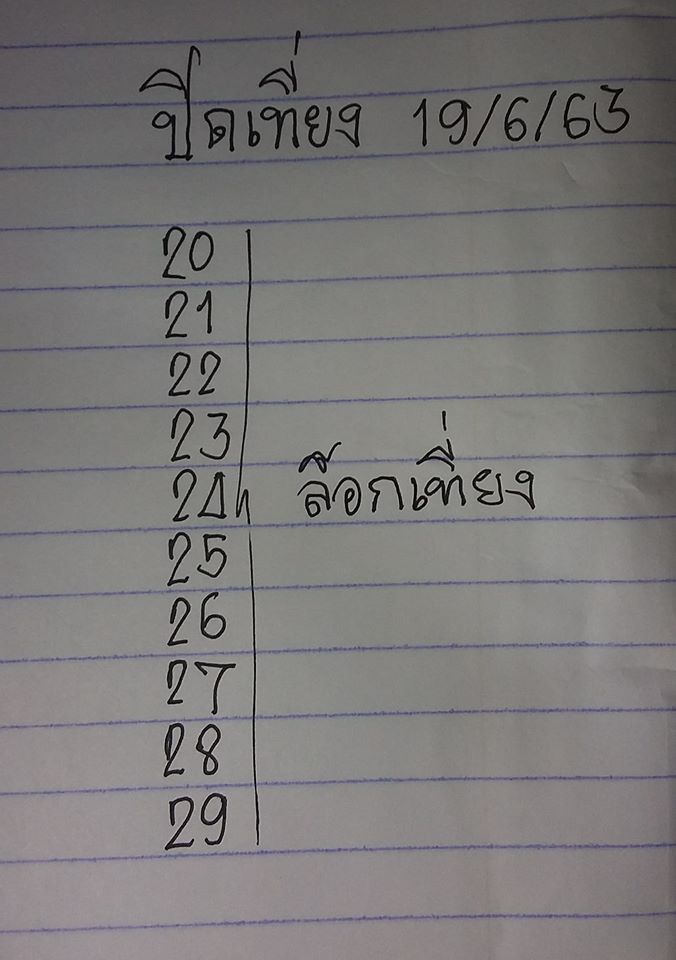 ปิดเที่ยง 19/6/63
20
21
22
23
24 ล็อกเที่ยง
25
26
27
28
29